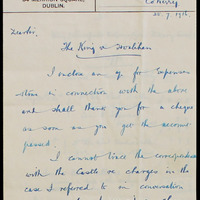 DUBLIN.
26.7.1916.
The King v
I enclose an a/c for expenses
in connection with the above
and shall thank you for a cheque
as soon as you get the account
passed.
I cannot trace the correspondence
with the Castle re charges in the
case I referred to in conversation